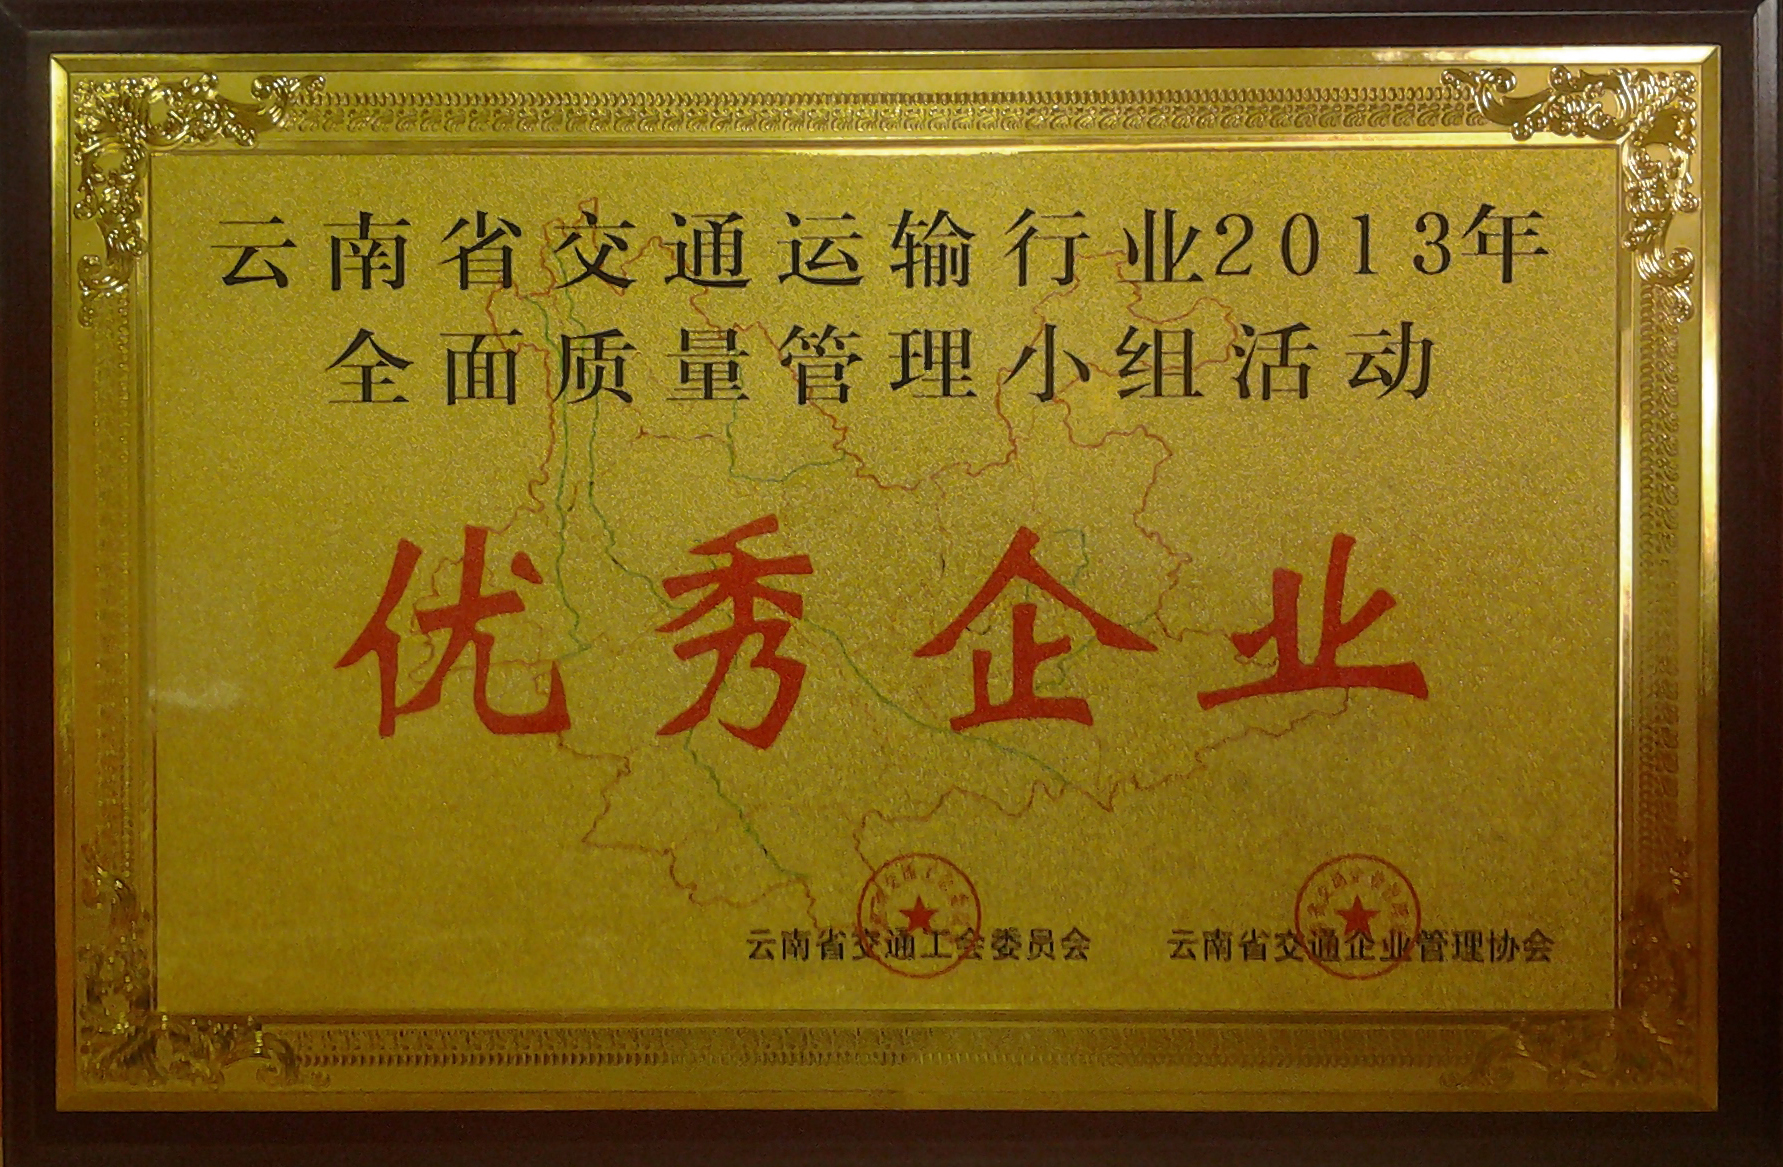 云南省交通运输行业2013年
全面质量管理小组活动
优秀企业
云南省交通工会委员会
云南省交通企业管理协会